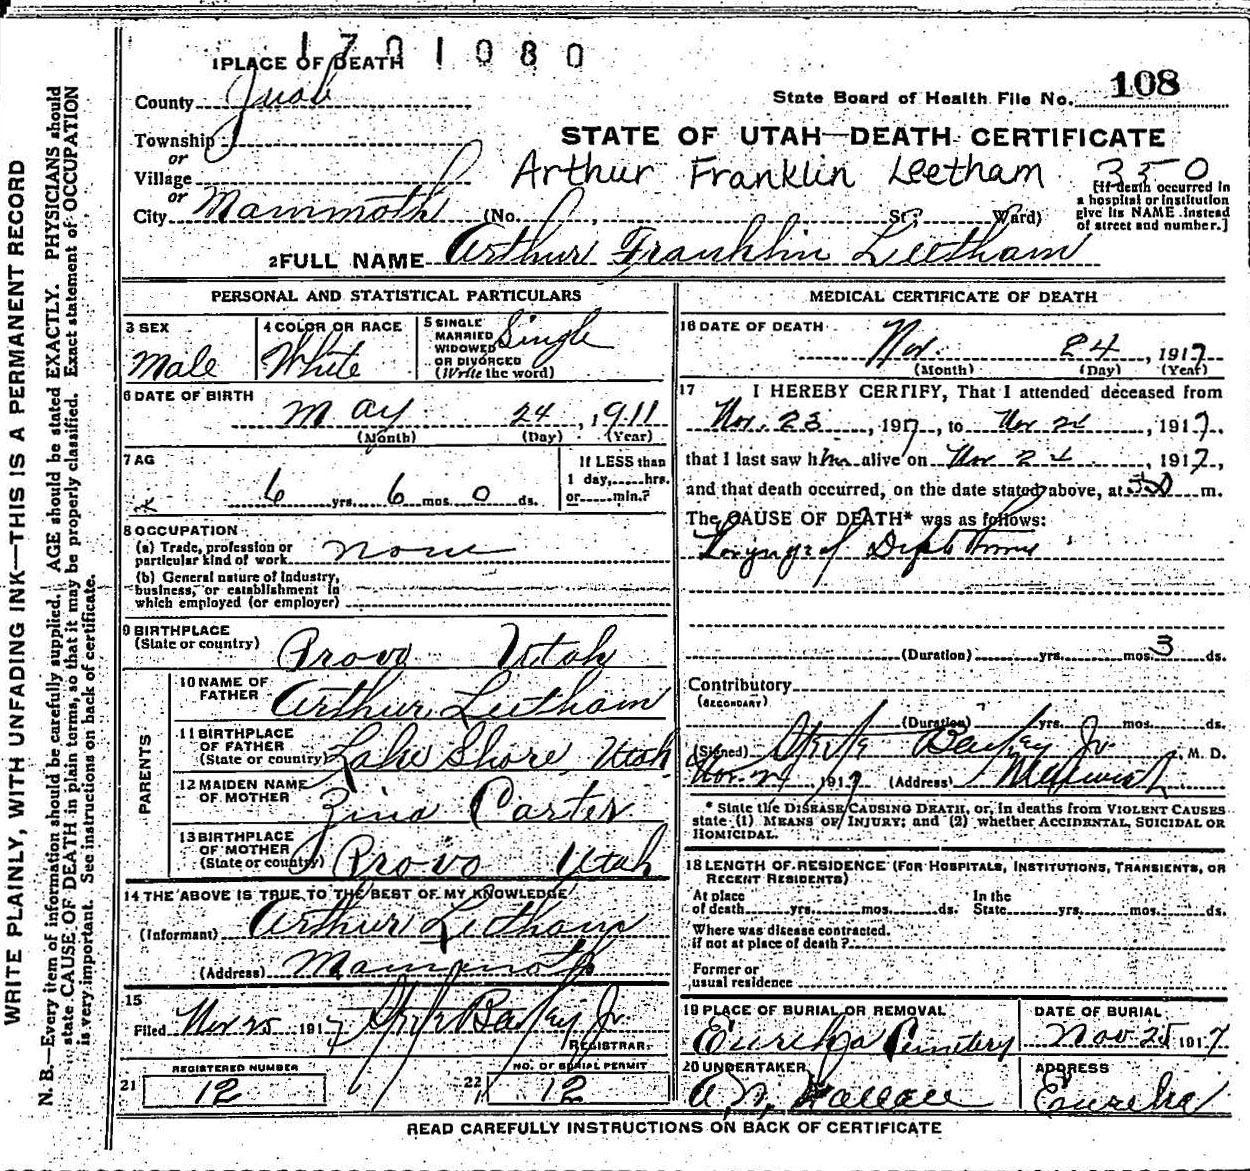 1701080
1 PLACE OF DEATH
County Juab
108
State Board of Health File No.
Township
or
STATE OF UTAH—DEATH CERTIFICATE
Village
or
Arthur Franklin Leetham 350
City Mammoth (No. , St.; Ward)
[If death occurred in
a hospital or institution
give its NAME instead
of street and number.]
2 FULL NAME Arthur Franklin Leetham
PERSONAL AND STATISTICAL PARTICULARS
3 SEX
Male
4 COLOR OR RACE
White
5 SINGLE
MARRIED
WIDOWED
OR DIVORCED
(Write the word)
Single
6 DATE OF BIRTH
May 24, 1911
(Month) (Day) (Year)
7 AG
6 yrs. 6 mos. 0 ds.
If LESS than
1 day, hrs.
or min.?
8 OCCUPATION
(a) Trade, profession or
particular kind of work none
(b) General nature of Industry,
business, or establishment in
which employed (or employer)
9 BIRTHPLACE
(State or country)
Provo Utah
PARENTS
10 NAME OF
FATHER
Arthur Leetham
11 BIRTHPLACE
OF FATHER
(State or country) Lake Shore, Utah
12 MAIDEN NAME
OF MOTHER
Zina Carter
13 BIRTHPLACE
OF MOTHER
(State or country) Provo Utah
14 THE ABOVE IS TRUE TO THE BEST OF MY KNOWLEDGE
(Informant) Arthur Leetham
(Address) Mammoth
15
Filed Nov 25 1917 Bailey Jr.
REGISTRAR.
21
REGISTERED NUMBER
12
22
NO. OF BURIAL PERMIT
12
MEDICAL CERTIFICATE OF DEATH
16 DATE OF DEATH
Nov. 24, 1917
(Month) (Day) (Year)
17 I HEREBY CERTIFY, That I attended deceased from
Nov. 23, 1917, to Nov 24, 1917,
that I last saw him alive on Nov 24, 1917,
and that death occurred, on the date stated above, at m.
The CAUSE OF DEATH* was as follows:
Laryngeal Diphtheria
(Duration) yrs. mos. 3 ds.
Contributory
(SECONDARY)
(Duration) yrs. mos. ds.
(Signed) Bailey Jr., M. D.
Nov. 24, 1917 (Address) Mammoth
* State the DISEASE CAUSING DEATH, or, in deaths from VIOLENT CAUSES
state (1) MEANS OF INJURY; and (2) whether ACCIDENTAL, SUICIDAL OR
HOMICIDAL.
18 LENGTH OF RESIDENCE (FOR HOSPITALS, INSTITUTIONS, TRANSIENTS, OR
RECENT RESIDENTS)
At place
of death yrs. mos. ds.
In the
State yrs. mos. ds.
Where was disease contracted.
if not at place of death?
Former or
usual residence
19 PLACE OF BURIAL OR REMOVAL
Eureka Cemetery
DATE OF BURIAL
Nov. 25 1917
20 UNDERTAKER
A. N. Wallace
ADDRESS
Eureka
READ CAREFULLY INSTRUCTIONS ON BACK OF CERTIFICATE
WRITE PLAINLY, WITH UNFADING INK—THIS IS A PERMANENT RECORD
N. B.—Every item of information should be carefully supplied. AGE should be stated EXACTLY. PHYSICIANS should
state CAUSE OF DEATH in plain terms, so that it may be properly classified. Exact statement of OCCUPATION
is very important. See instructions on back of certificate.